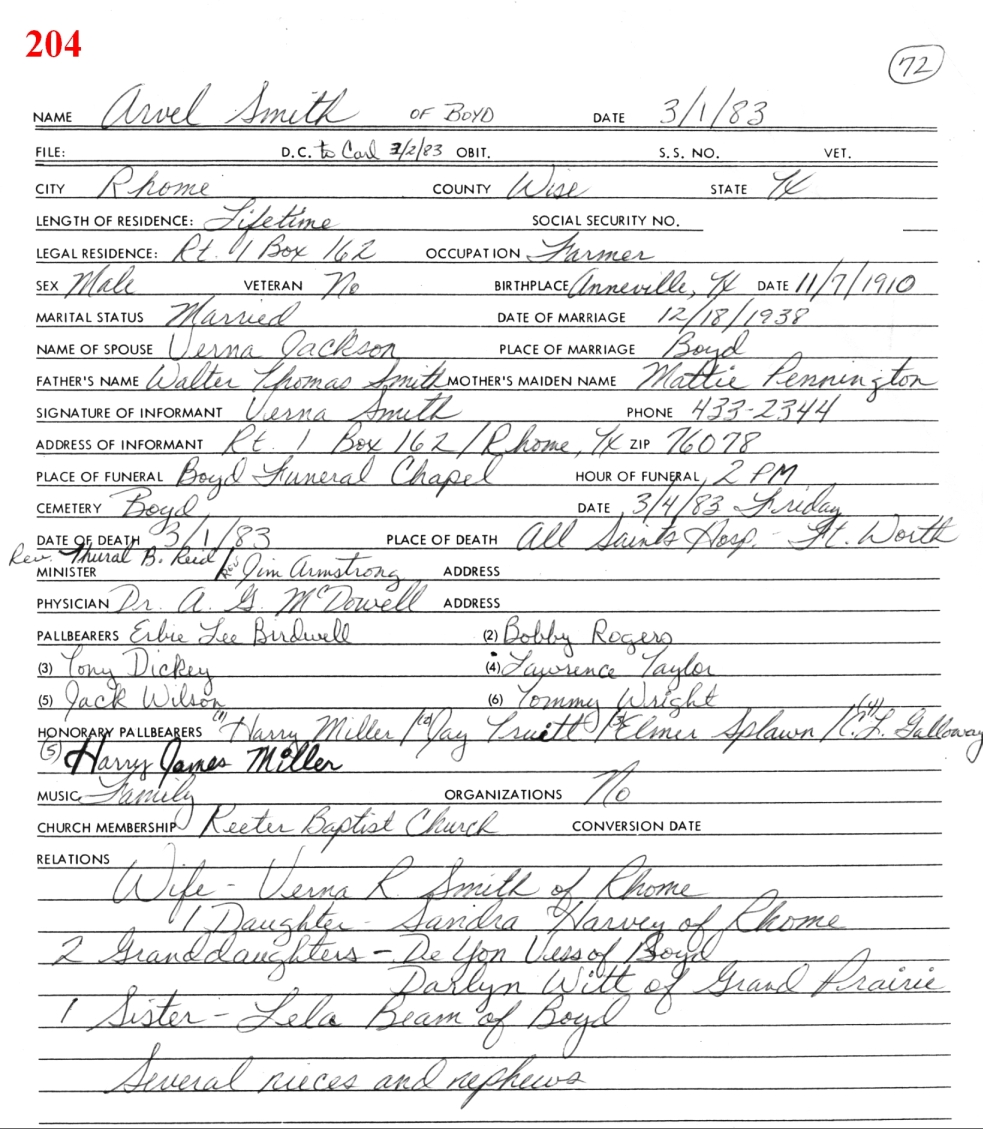 204
72
NAME Arvel Smith OF BOYD DATE 3/1/83
FILE: D.C. to Carl 3/2/83 OBIT. S.S. NO. VET.
CITY Rhome COUNTY Wise STATE Tx
LENGTH OF RESIDENCE: Lifetime SOCIAL SECURITY NO.
LEGAL RESIDENCE: Rt. 1 Box 162 OCCUPATION Farmer
SEX Male VETERAN No BIRTHPLACE Anneville, Tx DATE 11/7/1910
MARITAL STATUS Married DATE OF MARRIAGE 12/18/1938
NAME OF SPOUSE Verna Jackson PLACE OF MARRIAGE Boyd
FATHER'S NAME Walter Thomas Smith MOTHER'S MAIDEN NAME Mattie Pennington
SIGNATURE OF INFORMANT Verna Smith PHONE 433-2344
ADDRESS OF INFORMANT Rt. 1 Box 162 / Rhome, Tx ZIP 76078
PLACE OF FUNERAL Boyd Funeral Chapel HOUR OF FUNERAL 2 PM
CEMETERY Boyd DATE 3/4/83 Friday
DATE OF DEATH 3/1/83 PLACE OF DEATH All Saints Hosp. - Ft. Worth
Rev. Thural B. Reid / Rev. Jim Armstrong
MINISTER ADDRESS
PHYSICIAN Dr. A. G. McDowell ADDRESS
PALLBEARERS Erbie Lee Birdwell (2) Bobby Rogers
(3) Tony Dickey (4) Lawrence Taylor
(5) Jack Wilson (6) Tommy Wright
HONORARY PALLBEARERS (1) Harry Miller / (2) Jay Pruett / (3) Elmer Splawn / (4) C. L. Galloway
(5) Harry James Miller
MUSIC Family ORGANIZATIONS No
CHURCH MEMBERSHIP Keeter Baptist Church CONVERSION DATE
RELATIONS
Wife - Verna R. Smith of Rhome
1 Daughter - Sandra Harvey of Rhome
2 Granddaughters - De Yon Vess of Boyd
Darlyn Witt of Grand Prairie
1 Sister - Lela Beam of Boyd
Several nieces and nephews